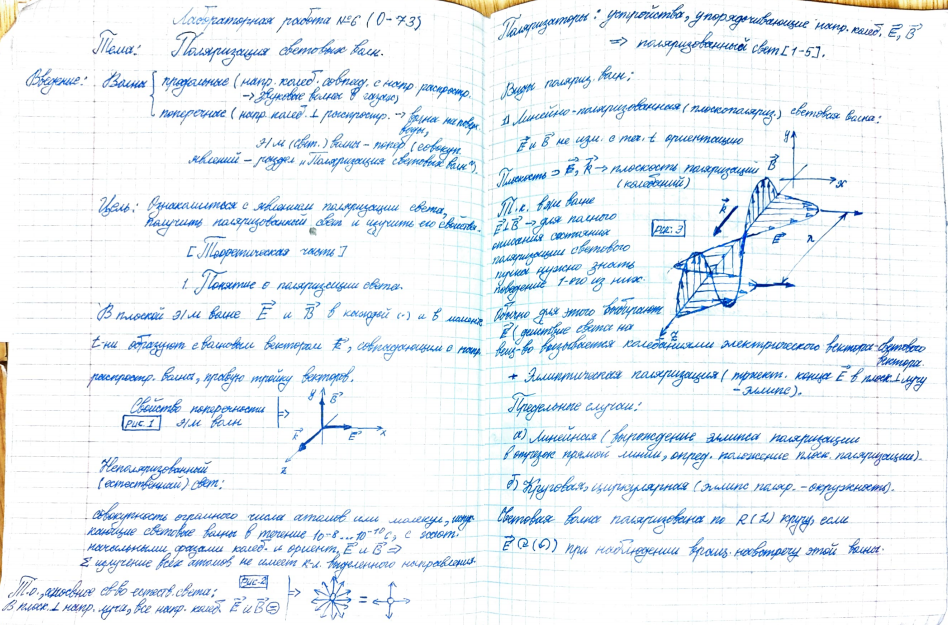 Лабораторная работа №6 (О-73)
Тема: Поляризация световых волн.
Введение: Волны { продольные (напр. колеб. совпад. с напр распростр.
→ звуковые волны в газах)
поперечные (напр. колеб. ⊥ распростр. → волны на повер.
воды,
э/м (свет.) волны - попер (совокуп.
явлений - раздел "Поляризация световых волн").
Цель: Ознакомиться с явлением поляризации света,
получить поляризованный свет и изучить его свойства.
[Теоретическая часть]
1. Понятие о поляризации света.
В плоской э/м волне E и B в каждой (·) и в момент
t-ни образуют с волновым вектором k, совпадающим с напр.
распростр. волны, правую тройку векторов.
Свойство поперечности
Рис. 1 э/м волн ⇒
y B E x k z
Неполяризованный
(естественный) свет:
совокупность огромного числа атомов или молекул, испус
кающие световые волны в течение 10⁻⁸...10⁻¹⁰ с, с хаот.
начальными фазами колеб. и ориент. E и B ⇒
Σ излучение всех атомов не имеет к.-л. выделенного направления
Рис. 2
Т.о., основное св-во естеств. света:
В плоск. ⊥ напр. луча, все напр. колеб. E и B ⊜ ⇒ =
Поляризаторы: устройства, упорядочивающие напр. колеб. E, B
⇒ поляризованный свет [1-5].
Виды поляриз. волн:
1) Линейно-поляризованная (плоскополяриз.) световая волна:
E и B не изм. с теч. t ориентацию
Плоскость ⊃ E, k → плоскость поляризации
(колебаний)
Т.к. в э/м волне
E⊥B → для полного
описания состояния
поляризации светового
пучка нужно знать
поведение 1-го из них.
Рис. 3
y B x k E λ z
Обычно для этого выбирают
E (действие света на
вещ-во вызывается колебаниями электрического вектора - светового
вектора
+ Эллиптическая поляризация (траект. конца E в плоск. ⊥ лучу
- эллипс).
Предельные случаи:
а) Линейная (вырождение эллипса поляризации
в отрезок прямой линии, опред. положение плоск. поляризации).
б) Круговая, циркулярная (эллипс поляр. - окружность).
Световая волна поляризована по R (L) кругу, если
E ↻ (↺) при наблюдении вращ. навстречу этой волны.